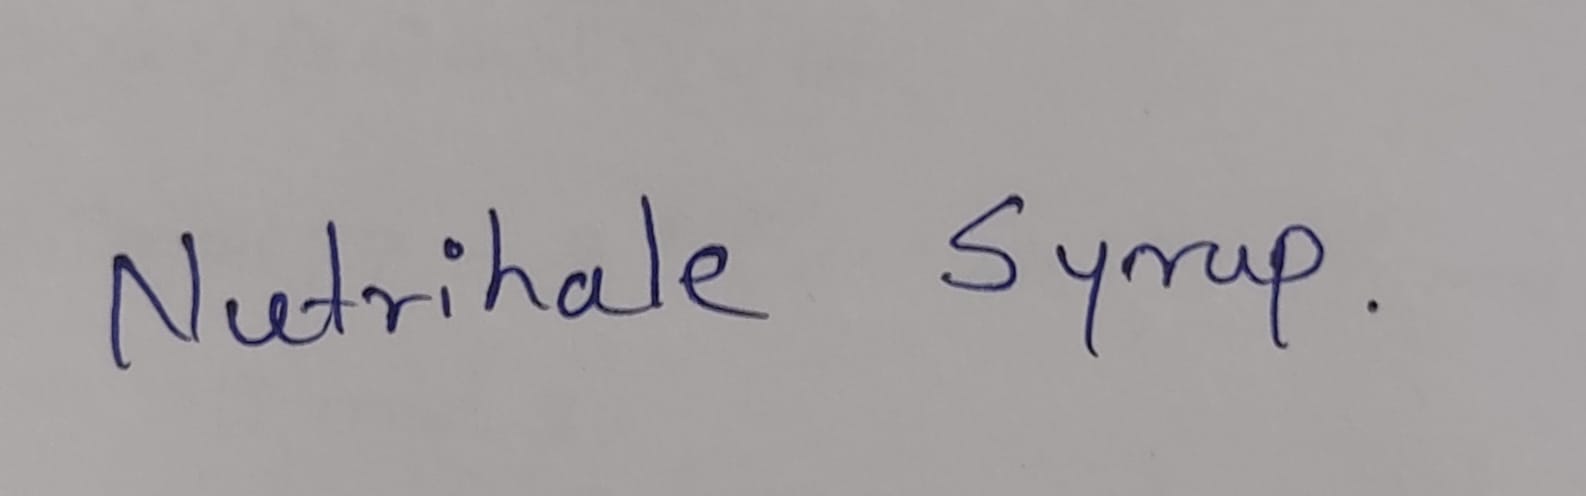 Nutrihale Syrup.